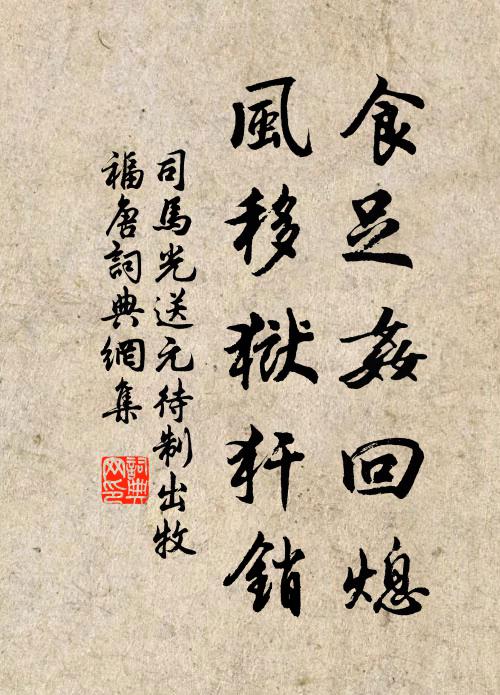 食足姦回熄
風移獄犴銷
司馬光送元待制出牧
福唐詞典網集
詞典網印